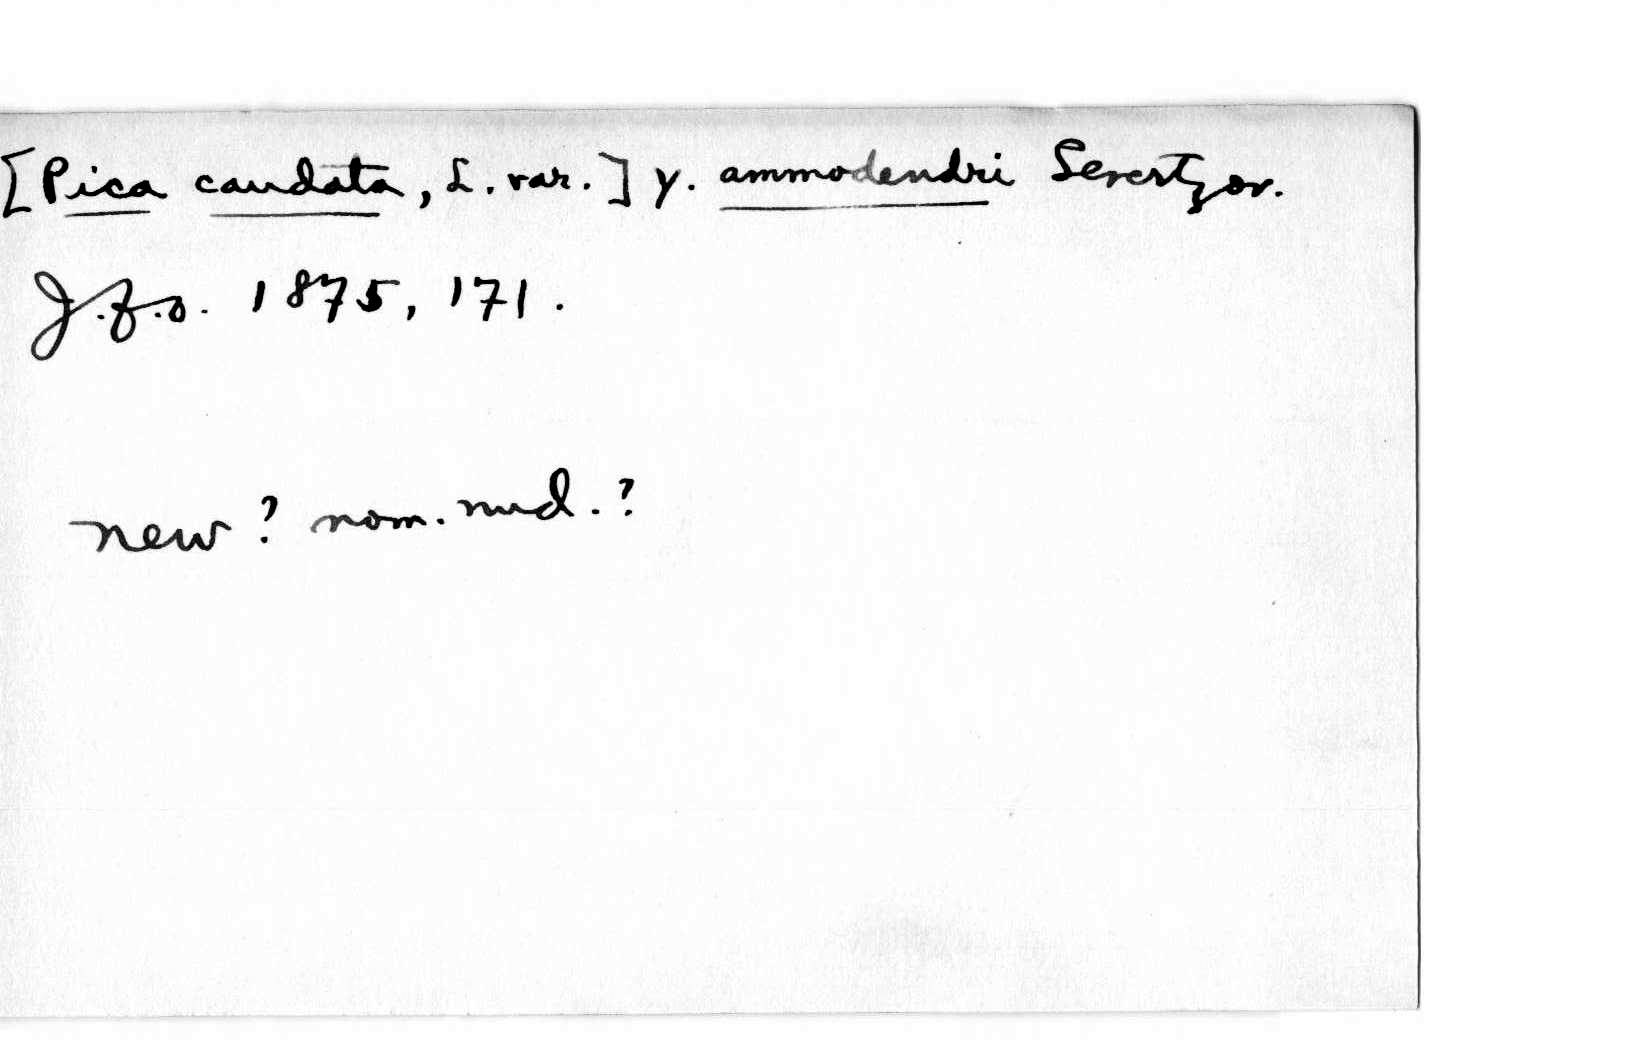 [Pica caudata, L. var.] γ. ammodendri Severtzov.
J.f.o. 1875, 171.
new? nom. nud.?